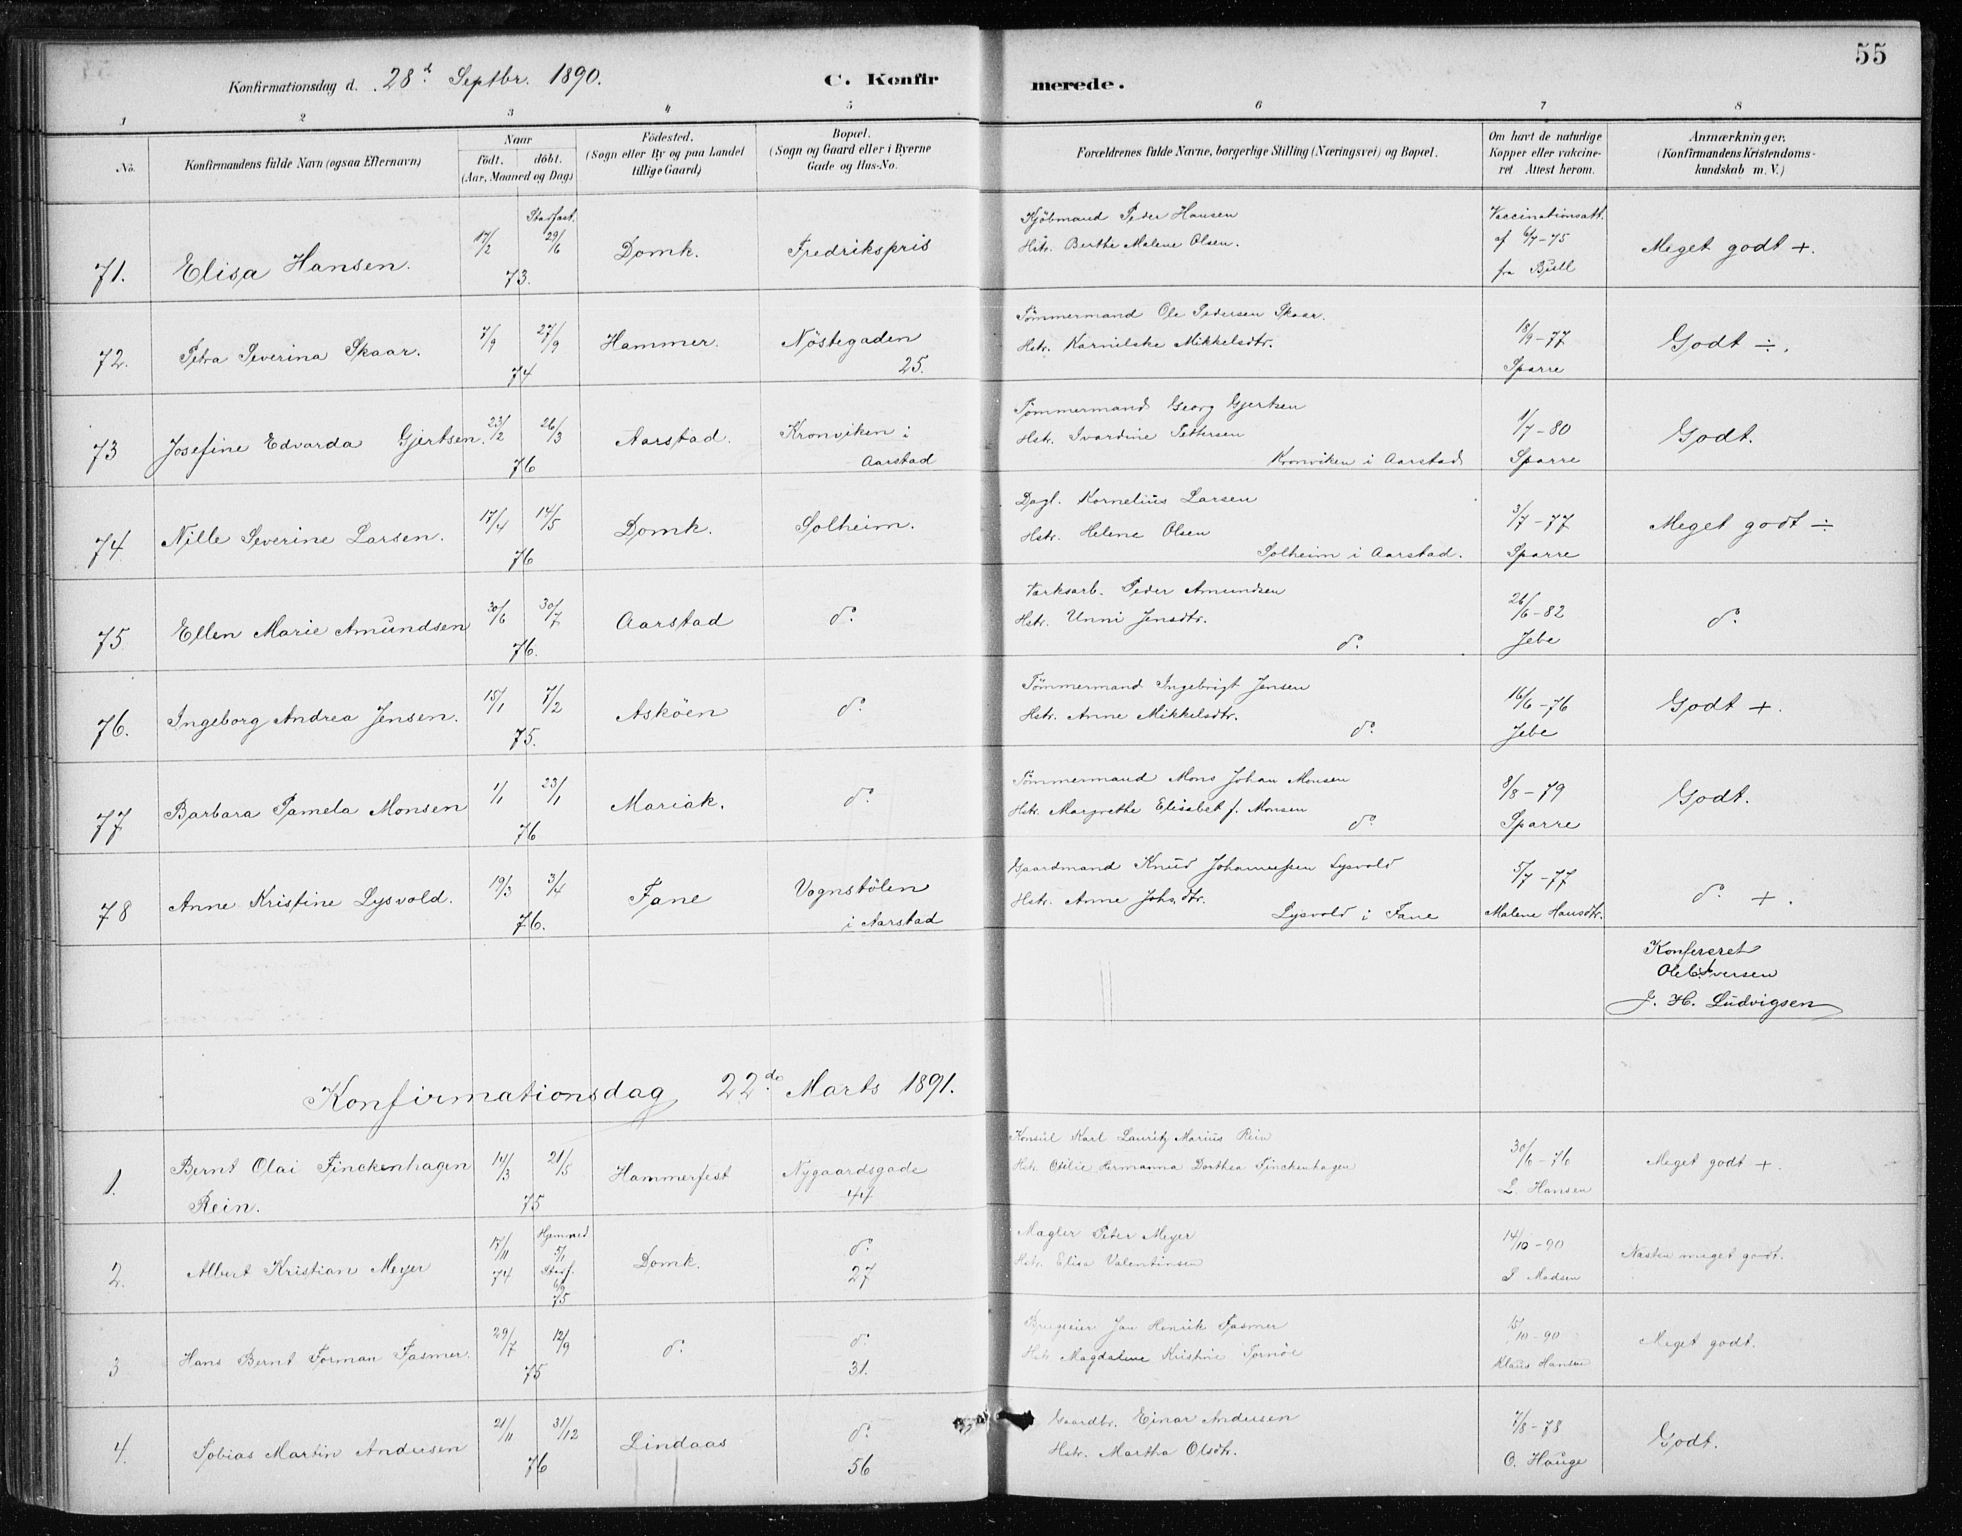 55
Konfirmationsdag d. 28d Septbr. 1890.
C. Konfirmerede.
1 2 3 4 5 6 7 8
No.
Konfirmandens fulde Navn (ogsaa Efternavn)
Naar
födt. döbt.
(Aar, Maaned og Dag)
Födested.
(Sogn eller By og paa Landet
tillige Gaard)
Bopæl.
(Sogn og Gaard eller i Byerne
Gade og Hus-No.
Forældrenes fulde Navne, borgerlige Stilling (Næringsvei) og Bopæl.
Om havt de naturlige
Kopper eller vakcine-
ret Attest herom.
Anmærkninger,
(Konfirmandens Kristendoms-
kundskab m. V.)
71. Elisa Hansen. 17/2 Stadfæst. 29/6 73. Domk. Fredrikspris
Kjöbmand Peder Hansen
Hstr. Berthe Malene Olsen.
Vaccinationsatt.
af 6/7-75
fra Bull
Meget godt +.
72. Petra Severina Skaar. 7/9 27/9 74 Hammer. Nöstegaden
25.
Tömmermand Ole Pedersen Skaar.
Hstr. Karnilske Mikkelsdtr.
18/9-77
Sparre
Godt ÷.
73 Josefine Edvarda Gjertsen. 23/2 26/3 76 Aarstad. Kronviken i
Aarstad
Tömmermand Georg Gjertsen
Hstr. Ivardine Pettersen
Kronviken i Aarstad
1/7-80
Sparre
Godt.
74 Nille Severine Larsen. 17/4 14/5 76 Domk. Solheim.
Dagl. Kornelius Larsen
Hstr. Helene Olsen
Solheim i Aarstad.
3/7-77
Sparre
Meget godt ÷
75. Ellen Marie Amundsen 30/6 30/7 76. Aarstad do
Værksarb. Peder Amundsen
Hstr. Unni Jensdtr.
do
26/6-82
Jebe
do
76. Ingeborg Andrea Jensen. 15/1 7/2 75. Asköen do
Tömmermand Ingebrigt Jensen
Hstr. Anne Mikkelsdtr.
do
16/6-76
Jebe
Godt +.
77 Barbara Pamela Monsen 1/1 23/1 76 Mariak. do
Tömmermand Mons Johan Monsen
Hstr. Margrethe Elisabet f. Monsen
do
8/8-79
Sparre
Godt.
78 Anne Kristine Lysvold. 19/3 3/4 76. Fane Vognstölen
i Aarstad
Gaardmand Knud Johannessen Lysvold
Hstr. Anne Johs.dtr.
Lysvold i Fane
5/7-77
Malene Hansdtr.
do +.
Konfereret
J. H. Ludvigsen
Konfirmationsdag 22de Marts 1891.
1. Bernt Olai Finckenhagen
Rein. 14/3 21/5 75 Hammerfest Nygaardsgade
44
Konsul Karl Lauritz Marius Rein
Hstr. Otilie Hermanna Dorthea Finckenhagen
30/6-76
L. Hansen
Meget godt +.
2. Albert Kristian Meyer 17/11 74 Hjemmed 5/1 Stadf. 6/9 75 Domk. do
27
Mægler Peter Meyer
Hstr. Elisa Valentinsen
14/10-90
S Madsen
Næsten meget godt.
3 Hans Bernt Forman Fasmer. 29/7 12/9 75 do do
31.
Jan Henrik Fasmer
Hstr. Magdalene Kristine Tornöe
15/10-90
Klaus Hansen
Meget godt.
4. Tobias Martin Andersen 21/11 31/12 76 Lindaas do
56
Gaardbr. Einar Andersen
Hstr. Martha Olsdtr.
7/8-78
O. Hauge
Godt.